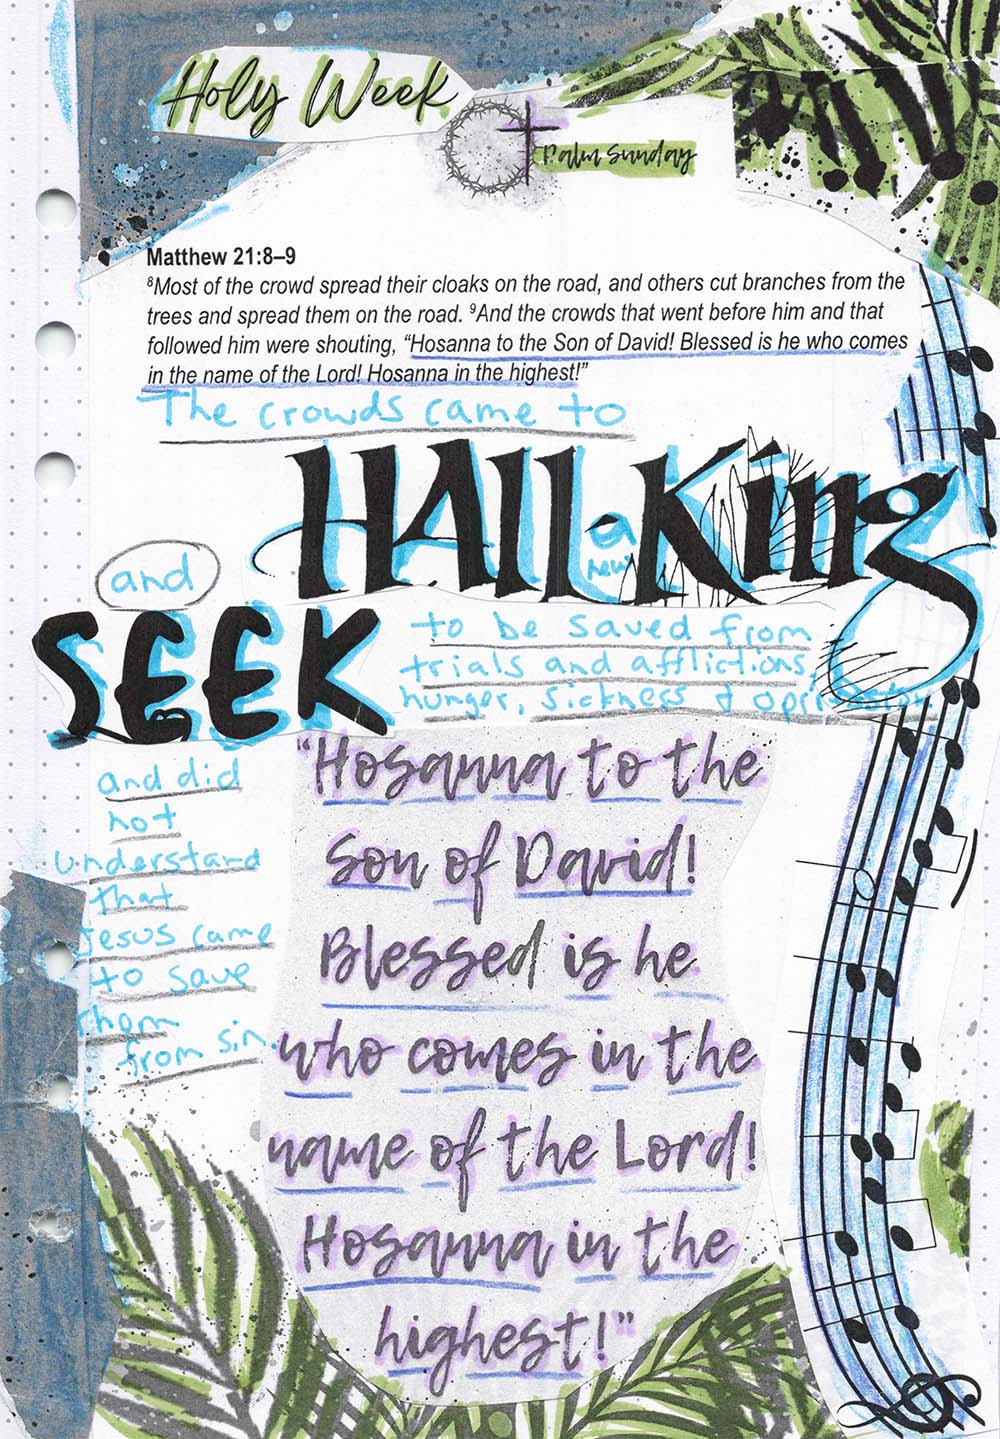 Holy Week
Palm Sunday
Matthew 21:8–9
⁸Most of the crowd spread their cloaks on the road, and others cut branches from the
trees and spread them on the road. ⁹And the crowds that went before him and that
followed him were shouting, “Hosanna to the Son of David! Blessed is he who comes
in the name of the Lord! Hosanna in the highest!”
The crowds came to
HAIL a new King
and
SEEK
to be saved from
trials and afflictions,
hunger, sickness & oppression
and did
not
understand
that
Jesus came
to save
them
from sin.
“Hosanna to the
Son of David!
Blessed is he
who comes in the
name of the Lord!
Hosanna in the
highest!”